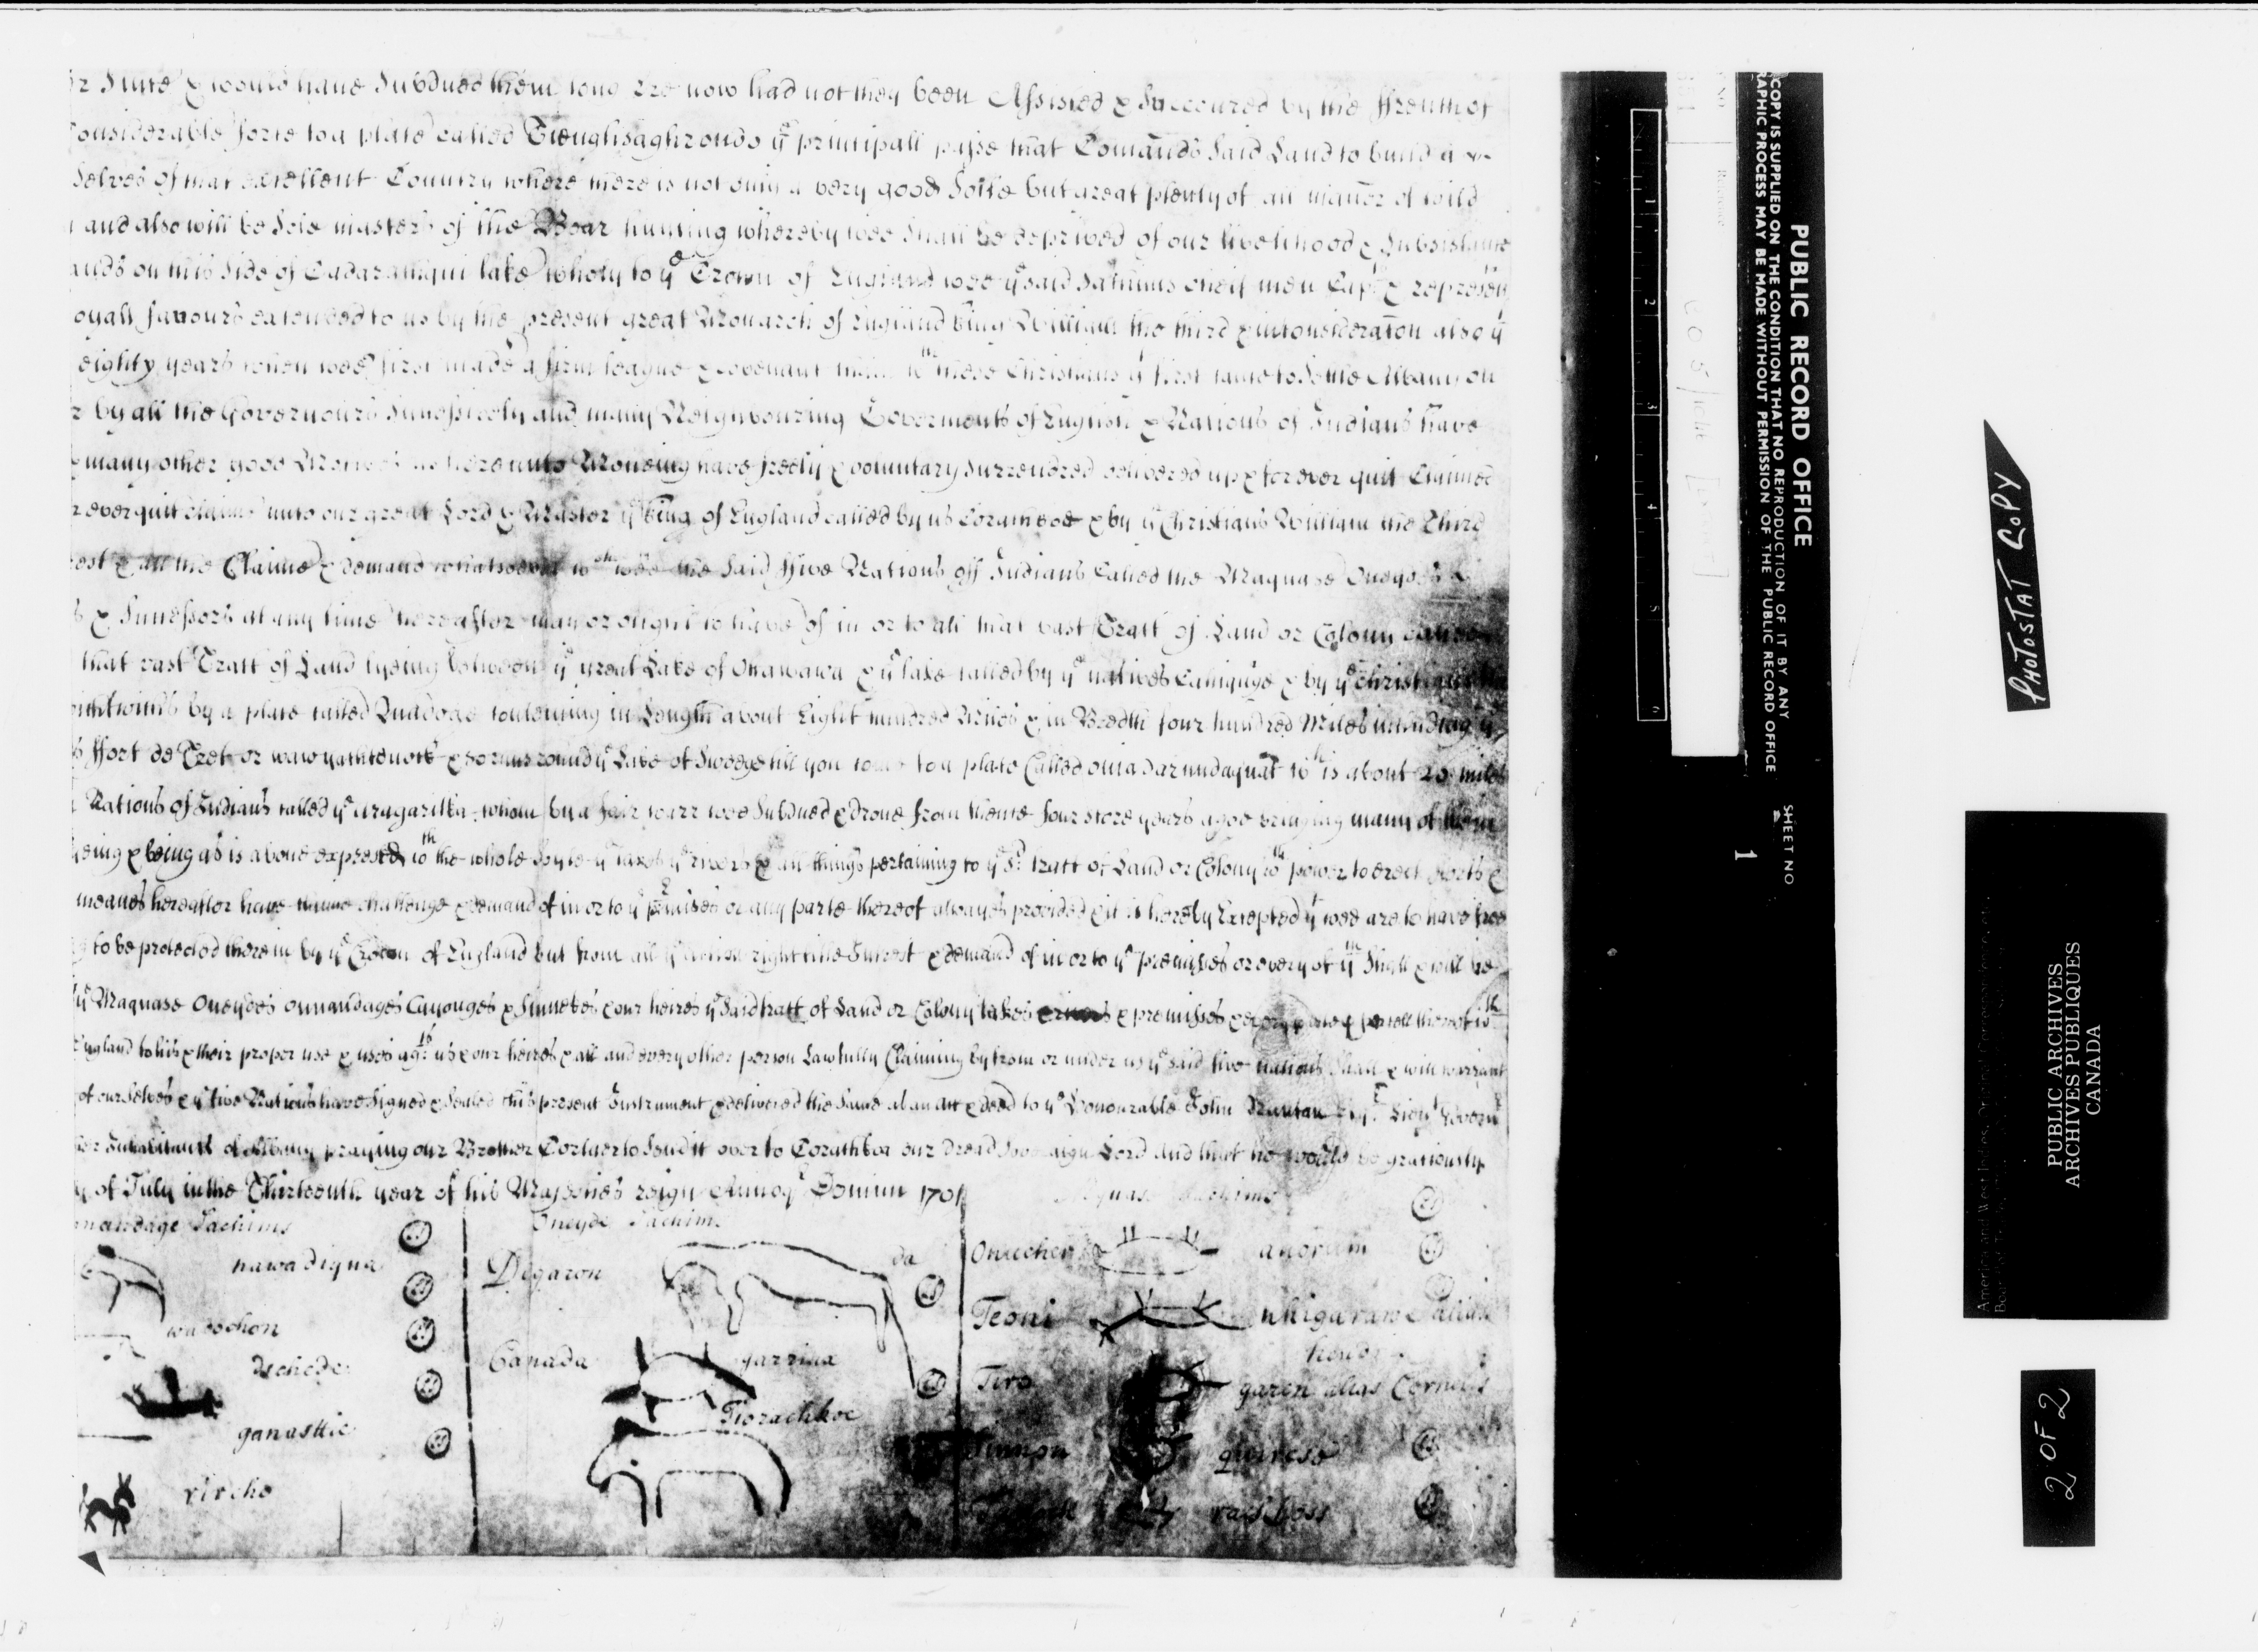 would have Subdued them long ere now had not they been Assisted & Succoured by the ffrench of
Considerable force to a place called Tieughsaghrondo ye principall passe that Comands said Land to build a
selves of that excellent Country where there is not only a very good Soile but great plenty of all maner of wild
and also will be Sole masters of the Boar hunting whereby wee shall be deprived of our livelihood & Subsistance
on this Side of Cadarachqui lake wholy to ye Crown of England wee ye said Sachims cheif men Capts & represen
oyall favours extended to us by the present great Monarch of England King William the third & in consideracon also yt
eighty years when wee first made a firm league & covenant chain wth these Christians yt first came to Settle Albany on
by all the Governours Successively and many Neighbouring Goverments of English & Nations of Indians have
many other good Motives us hereunto Moveing have freely & voluntary Surrendred delivered up & for ever quit Claimed
ever quit claime unto our great Lord & Master ye King of England called by us Corachkoe & by ye Christians William the Third
& all the Claime & demand whatsoever wch wee the said ffive Nations off Indians Called the Maquase Oneydes
& Successors at any time hereafter may or ought to have of in or to all that vast Tract of Land or Colony called
that vast Tract of Land lyeing between ye great Lake of Ottawawa & ye lake called by ye natives Cahiquage & by ye Christians
by a place called Quadoge conteining in Length about Eight hundred Miles & in Bredth four hundred Miles including ye
ffort de Tret or wawyachtenock & so runs round ye Lake of Swege till you come to a place Called oniadarundaquat wch is about 20 miles
Nations of Indians called ye aragaritka whom by a fair warr wee Subdued & drove from thence four score years agoe bringing many of them
being as is above expressed wth the whole Soyle ye lakes ye rivers & all things pertaining to ye sd tract of Land or Colony wth power to erect fforts &
meanes hereafter have claime challenge & demand of in or to ye premises or any parte thereof alwayes provided & it is hereby Excepted yt wee are to have free
to be protected therein by ye Crown of England but from all ye action right title Interest & demand of in or to ye premisses or every of ym Shall & will be
ye Maquase Oneydes onnandages Cayouges & Sinnekes & our heires ye Said tract of Land or Colony lakes rivers & premisses & every part & parcell thereof wth
England to his & their proper use & uses agst us & our heires & all and every other person Lawfully Claiming by from or under us ye said five nations Shall & will warrant
of our Selves & ye five Nations have Signed & Sealed this present Instrument & delivered the Same as an act & deed to ye Honourable John Nanfan Esqr Lieut Governr
Inhabitants of Albany praying our Brother Corlaer to Send it over to Corachkoo our dread Lord and that he would be graciously
of July in the Thirteenth year of his Majesties reign Annoqe Domini 1701
Sachims
nawadiqua
wadochon
dechede
ganastie
rircho
Oneyde Sachims
Degaron da
Canada garriaa
Tiorachkoe
Sachims
Onucher anorum
Teoni nhigarawe alias
hendr
Tiro garen alias Cornelis
Sinnon quireso
PUBLIC RECORD OFFICE
COPY IS SUPPLIED ON THE CONDITION THAT NO REPRODUCTION OF IT BY ANY
PROCESS MAY BE MADE WITHOUT PERMISSION OF THE PUBLIC RECORD OFFICE
SHEET NO
1
1 2 3 4 5 6
PHOTOSTAT COPY
PUBLIC ARCHIVES
ARCHIVES PUBLIQUES
CANADA
2 OF 2